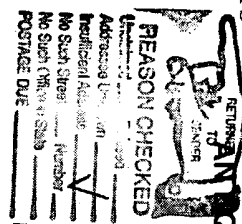 RETURNED
TO
SENDER
REASON CHECKED
Addressee
Insufficient Address
No Such Street Number
No Such Office State
POSTAGE DUE